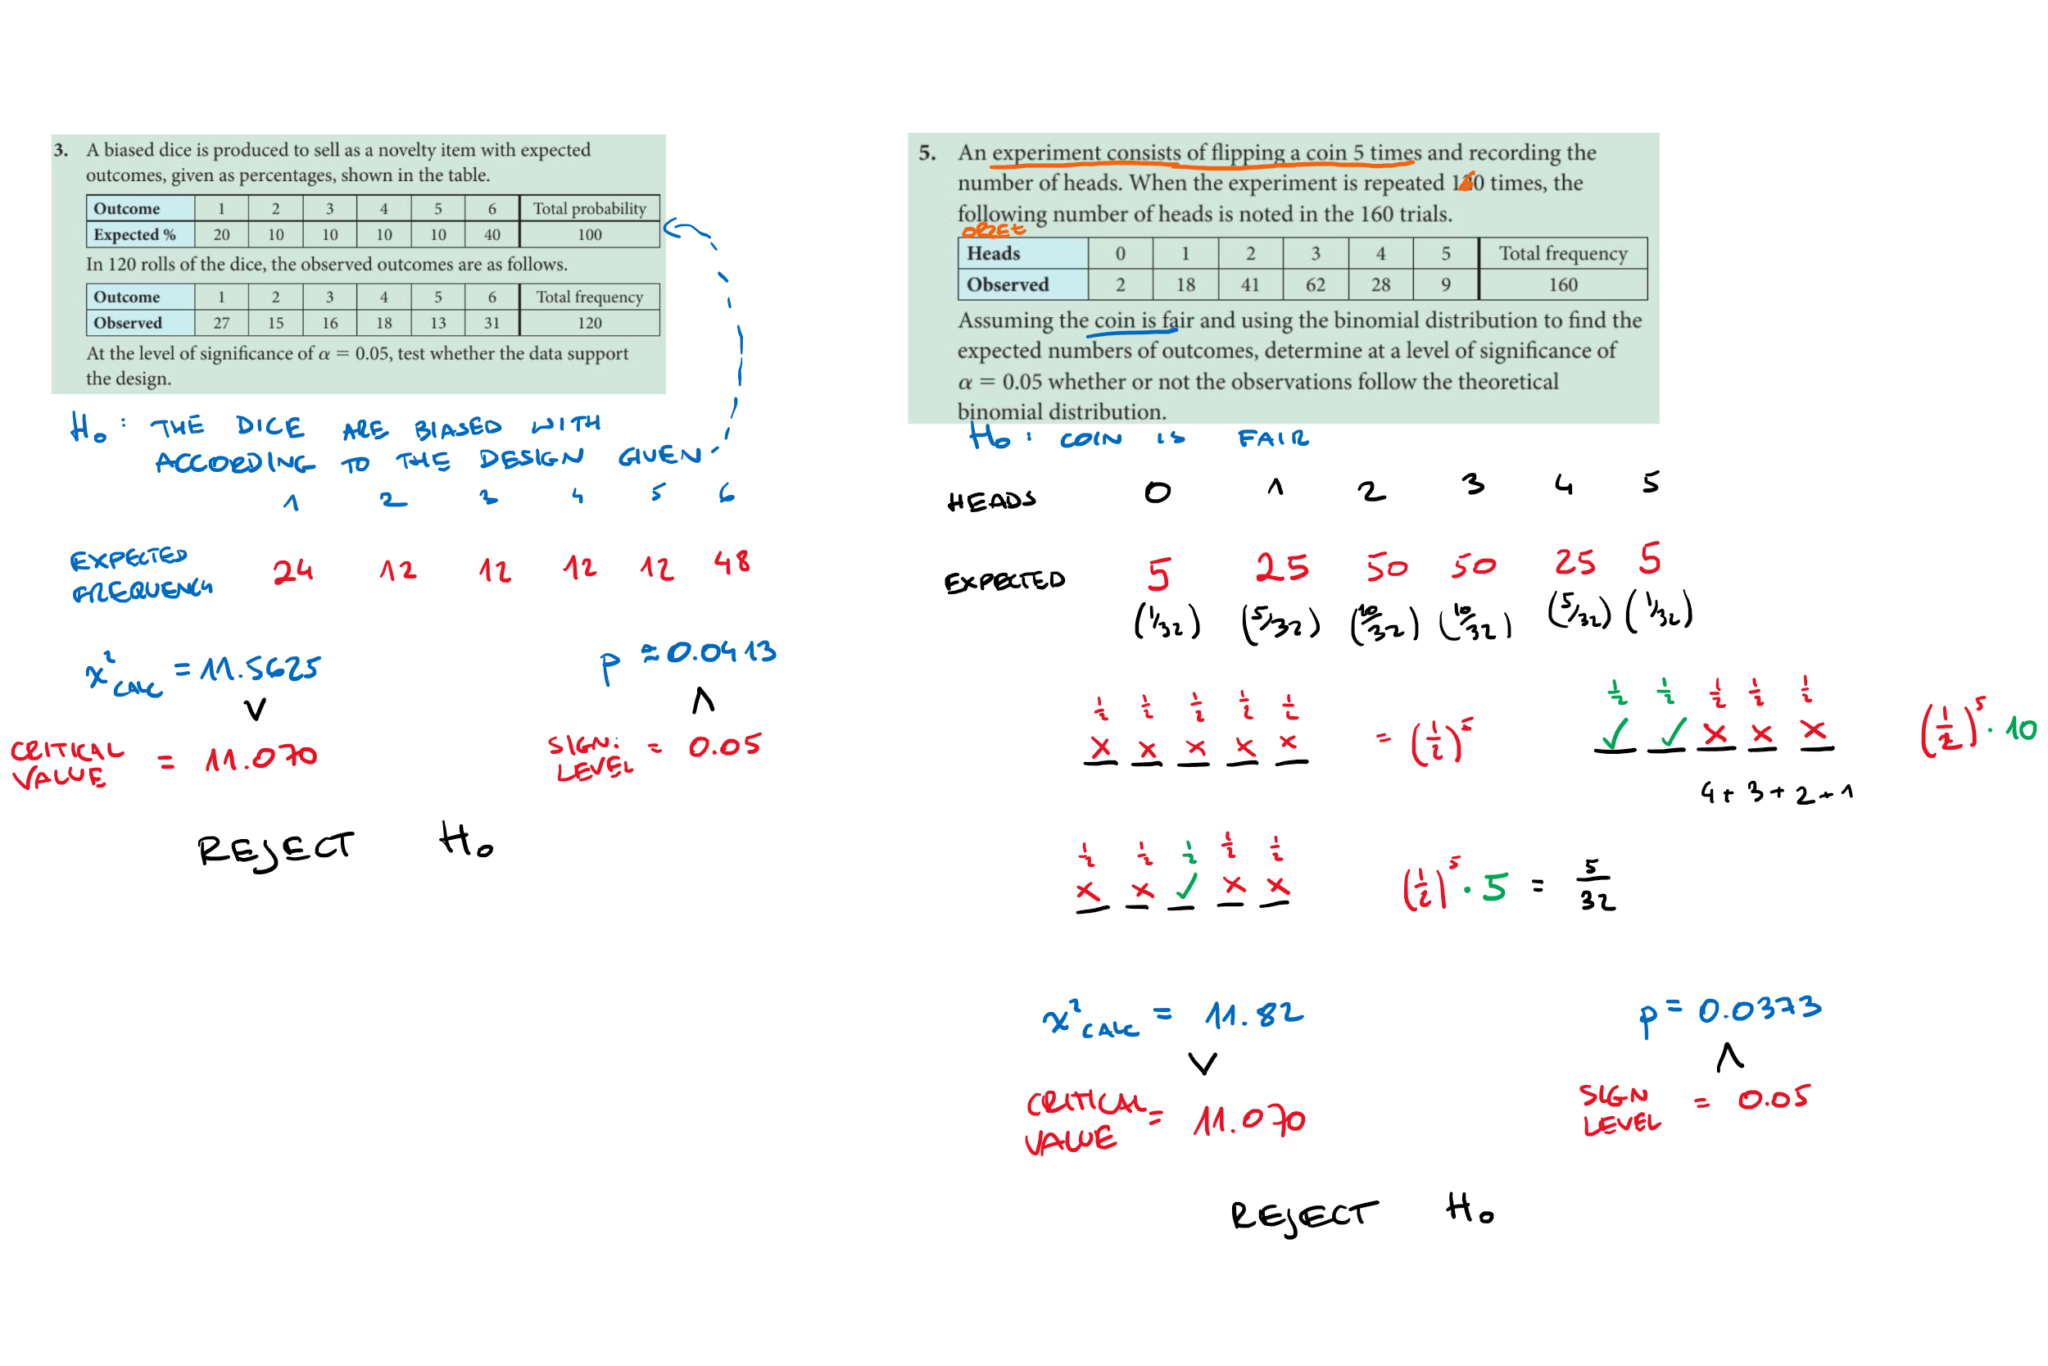 3. A biased dice is produced to sell as a novelty item with expected
outcomes, given as percentages, shown in the table.
Outcome 1 2 3 4 5 6 Total probability
Expected % 20 10 10 10 10 40 100
In 120 rolls of the dice, the observed outcomes are as follows.
Outcome 1 2 3 4 5 6 Total frequency
Observed 27 15 16 18 13 31 120
At the level of significance of α = 0.05, test whether the data support
the design.
H₀ : THE DICE ARE BIASED WITH
ACCORDING TO THE DESIGN GIVEN
1 2 3 4 5 6
EXPECTED
FREQUENCY 24 12 12 12 12 48
χ²CALC = 11.5625
V
CRITICAL
VALUE = 11.070
p ≈ 0.0413
Λ
SIGN.
LEVEL = 0.05
REJECT H₀
5. An experiment consists of flipping a coin 5 times and recording the
number of heads. When the experiment is repeated 160 times, the
following number of heads is noted in the 160 trials.
Heads 0 1 2 3 4 5 Total frequency
Observed 2 18 41 62 28 9 160
Assuming the coin is fair and using the binomial distribution to find the
expected numbers of outcomes, determine at a level of significance of
α = 0.05 whether or not the observations follow the theoretical
binomial distribution.
H₀ : COIN IS FAIR
HEADS 0 1 2 3 4 5
EXPECTED 5 25 50 50 25 5
(1/32) (5/32) (10/32) (10/32) (5/32) (1/32)
1/2 1/2 1/2 1/2 1/2
× × × × × = (1/2)⁵
1/2 1/2 1/2 1/2 1/2
✓ ✓ × × × (1/2)⁵ · 10
4 + 3 + 2 + 1
1/2 1/2 1/2 1/2 1/2
× × ✓ × × (1/2)⁵ · 5 = 5/32
χ²CALC = 11.82
V
CRITICAL
VALUE = 11.070
p = 0.0373
Λ
SIGN
LEVEL = 0.05
REJECT H₀